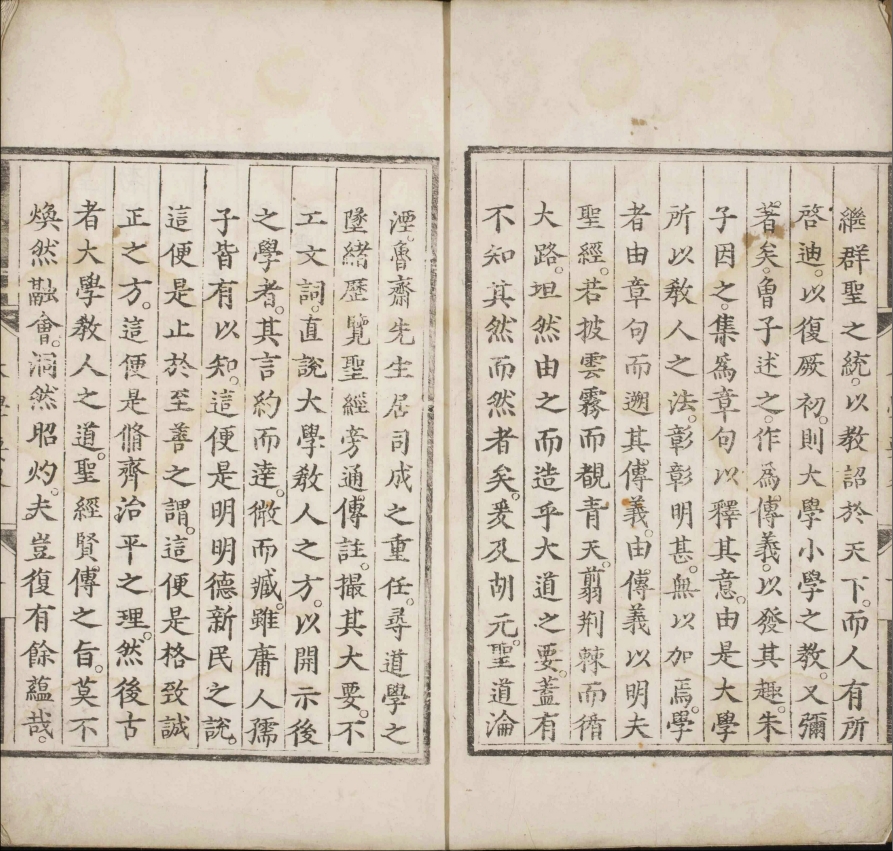 繼群聖之統。以教詔於天下。而人有所
啓迪。以復厥初。則大學小學之教。又彌
著矣。魯子述之。作爲傳義。以發其趣。朱
子因之。集爲章句以釋其意。由是大學
所以教人之法。彰彰明甚。無以加焉。學
者由章句而遡其傳義。由傳義以明夫
聖經。若披雲霧而覩青天。翦荆棘而循
大路。坦然由之而造乎大道之要。蓋有
不知其然而然者矣。爰及胡元。聖道淪
湮。魯齋先生居司成之重任。尋道學之
墜緒歷覽聖經旁通傳註。撮其大要。不
工文詞。直說大學教人之方。以開示後
之學者。其言約而達。微而臧。雖庸人孺
子皆有以知。這便是明明德新民之說。
這便是止於至善之謂。這便是格致誠
正之方。這便是脩齊治平之理。然後古
者大學教人之道。聖經賢傳之旨。莫不
煥然融會。洞然昭灼。夫豈復有餘蘊哉。